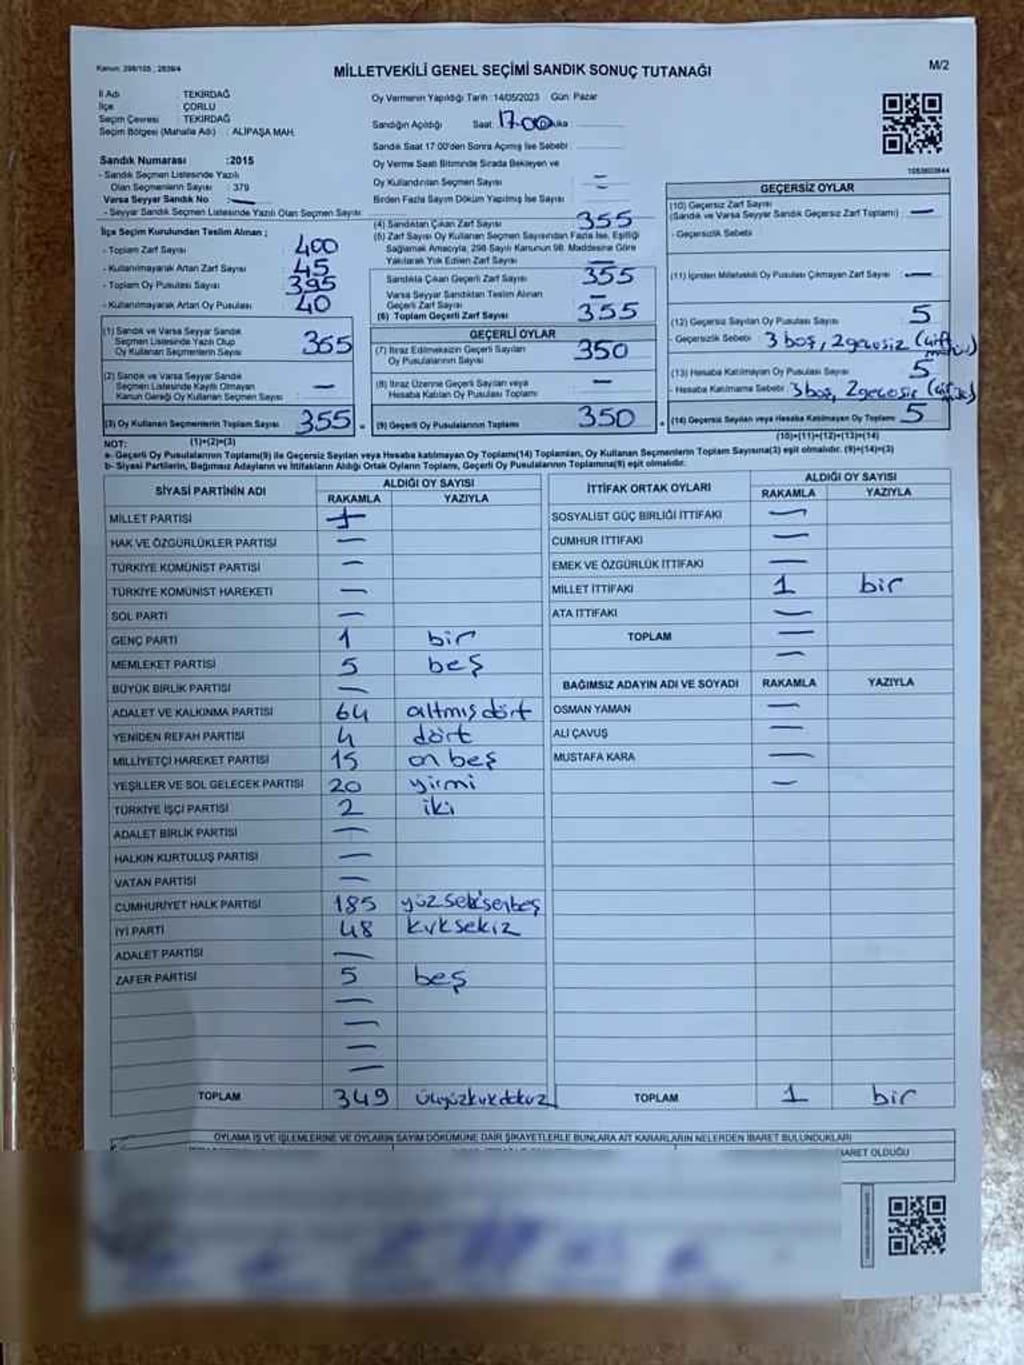 Kanun: 298/105 ; 2839/4
MİLLETVEKİLİ GENEL SEÇİMİ SANDIK SONUÇ TUTANAĞI
M/2
İl Adı TEKİRDAĞ
İlçe ÇORLU
Seçim Çevresi : TEKİRDAĞ
Seçim Bölgesi (Mahalle Adı) : ALİPAŞA MAH.
Sandık Numarası :2015
- Sandık Seçmen Listesinde Yazılı
Olan Seçmenlerin Sayısı : 379
Varsa Seyyar Sandık No : —
- Seyyar Sandık Seçmen Listesinde Yazılı Olan Seçmen Sayısı
İlçe Seçim Kurulundan Teslim Alınan ;
- Toplam Zarf Sayısı 400
- Kullanılmayarak Artan Zarf Sayısı 45
- Toplam Oy Pusulası Sayısı 395
- Kullanılmayarak Artan Oy Pusulası 40
(1) Sandık ve Varsa Seyyar Sandık
Seçmen Listesinde Yazılı Olup
Oy Kullanan Seçmenlerin Sayısı 355
(2) Sandık ve Varsa Seyyar Sandık
Seçmen Listesinde Kayıtlı Olmayan
Kanun Gereği Oy Kullanan Seçmen Sayısı —
(3) Oy Kullanan Seçmenlerin Toplam Sayısı 355 =
(1)+(2)=(3)
Oy Vermenin Yapıldığı Tarih :14/05/2023 Gün: Pazar
Sandığın Açıldığı Saat: 17.00
Sandık Saat 17:00'den Sonra Açılmış İse Sebebi:
Oy Verme Saati Bitiminde Sırada Bekleyen ve
Oy Kullandırılan Seçmen Sayısı —
Birden Fazla Sayım Döküm Yapılmış İse Sayısı —
(4) Sandıktan Çıkan Zarf Sayısı 355
(5) Zarf Sayısı Oy Kullanan Seçmen Sayısından Fazla İse, Eşitliği
Sağlamak Amacıyla, 298 Sayılı Kanunun 98. Maddesine Göre
Yakılarak Yok Edilen Zarf Sayısı —
Sandıkta Çıkan Geçerli Zarf Sayısı 355
Varsa Seyyar Sandıktan Teslim Alınan
Geçerli Zarf Sayısı —
(6) Toplam Geçerli Zarf Sayısı 355
GEÇERLİ OYLAR
(7) İtiraz Edilmeksizin Geçerli Sayılan
Oy Pusulalarının Sayısı 350
(8) İtiraz Üzerine Geçerli Sayılan veya
Hesaba Katılan Oy Pusulası Toplamı —
(9) Geçerli Oy Pusulalarının Toplamı 350 +
1083603844
GEÇERSİZ OYLAR
(10) Geçersiz Zarf Sayısı
(Sandık ve Varsa Seyyar Sandık Geçersiz Zarf Toplamı) —
- Geçersizlik Sebebi
(11) İçinden Milletvekili Oy Pusulası Çıkmayan Zarf Sayısı —
(12) Geçersiz Sayılan Oy Pusulası Sayısı 5
- Geçersizlik Sebebi 3 boş, 2 geçersiz (çift
(13) Hesaba Katılmayan Oy Pusulası Sayısı 5
- Hesaba Katılmama Sebebi 3 boş, 2 geçersiz (çift
(14) Geçersiz Sayılan veya Hesaba Katılmayan Oy Toplamı 5
(10)+(11)+(12)+(13)=(14)
NOT:
a- Geçerli Oy Pusulalarının Toplamı(9) ile Geçersiz Sayılan veya Hesaba katılmayan Oy Toplamı(14) Toplamları, Oy Kullanan Seçmenlerin Toplam Sayısına(3) eşit olmalıdır. (9)+(14)=(3)
b- Siyasi Partilerin, Bağımsız Adayların ve İttifakların Aldığı Ortak Oyların Toplamı, Geçerli Oy Pusulalarının Toplamına(9) eşit olmalıdır.
SİYASİ PARTİNİN ADI ALDIĞI OY SAYISI
RAKAMLA YAZIYLA
MİLLET PARTİSİ —
HAK VE ÖZGÜRLÜKLER PARTİSİ —
TÜRKİYE KOMÜNİST PARTİSİ —
TÜRKİYE KOMÜNİST HAREKETİ —
SOL PARTİ —
GENÇ PARTİ 1 bir
MEMLEKET PARTİSİ 5 beş
BÜYÜK BİRLİK PARTİSİ —
ADALET VE KALKINMA PARTİSİ 64 altmış dört
YENİDEN REFAH PARTİSİ 4 dört
MİLLİYETÇİ HAREKET PARTİSİ 15 on beş
YEŞİLLER VE SOL GELECEK PARTİSİ 20 yirmi
TÜRKİYE İŞÇİ PARTİSİ 2 iki
ADALET BİRLİK PARTİSİ —
HALKIN KURTULUŞ PARTİSİ —
VATAN PARTİSİ —
CUMHURİYET HALK PARTİSİ 185 yüz seksenbeş
İYİ PARTİ 48 kırksekiz
ADALET PARTİSİ —
ZAFER PARTİSİ 5 beş
—
—
—
—
TOPLAM 349 üçyüzkırkdokuz
İTTİFAK ORTAK OYLARI ALDIĞI OY SAYISI
RAKAMLA YAZIYLA
SOSYALİST GÜÇ BİRLİĞİ İTTİFAKI —
CUMHUR İTTİFAKI —
EMEK VE ÖZGÜRLÜK İTTİFAKI —
MİLLET İTTİFAKI 1 bir
ATA İTTİFAKI —
TOPLAM —
—
BAĞIMSIZ ADAYIN ADI VE SOYADI RAKAMLA YAZIYLA
OSMAN YAMAN —
ALİ ÇAVUŞ —
MUSTAFA KARA —
—
TOPLAM 1 bir
OYLAMA İŞ VE İŞLEMLERİNE VE OYLARIN SAYIM DÖKÜMÜNE DAİR ŞİKAYETLERLE BUNLARA AİT KARARLARIN NELERDEN İBARET BULUNDUKLARI
BARET OLDUĞU